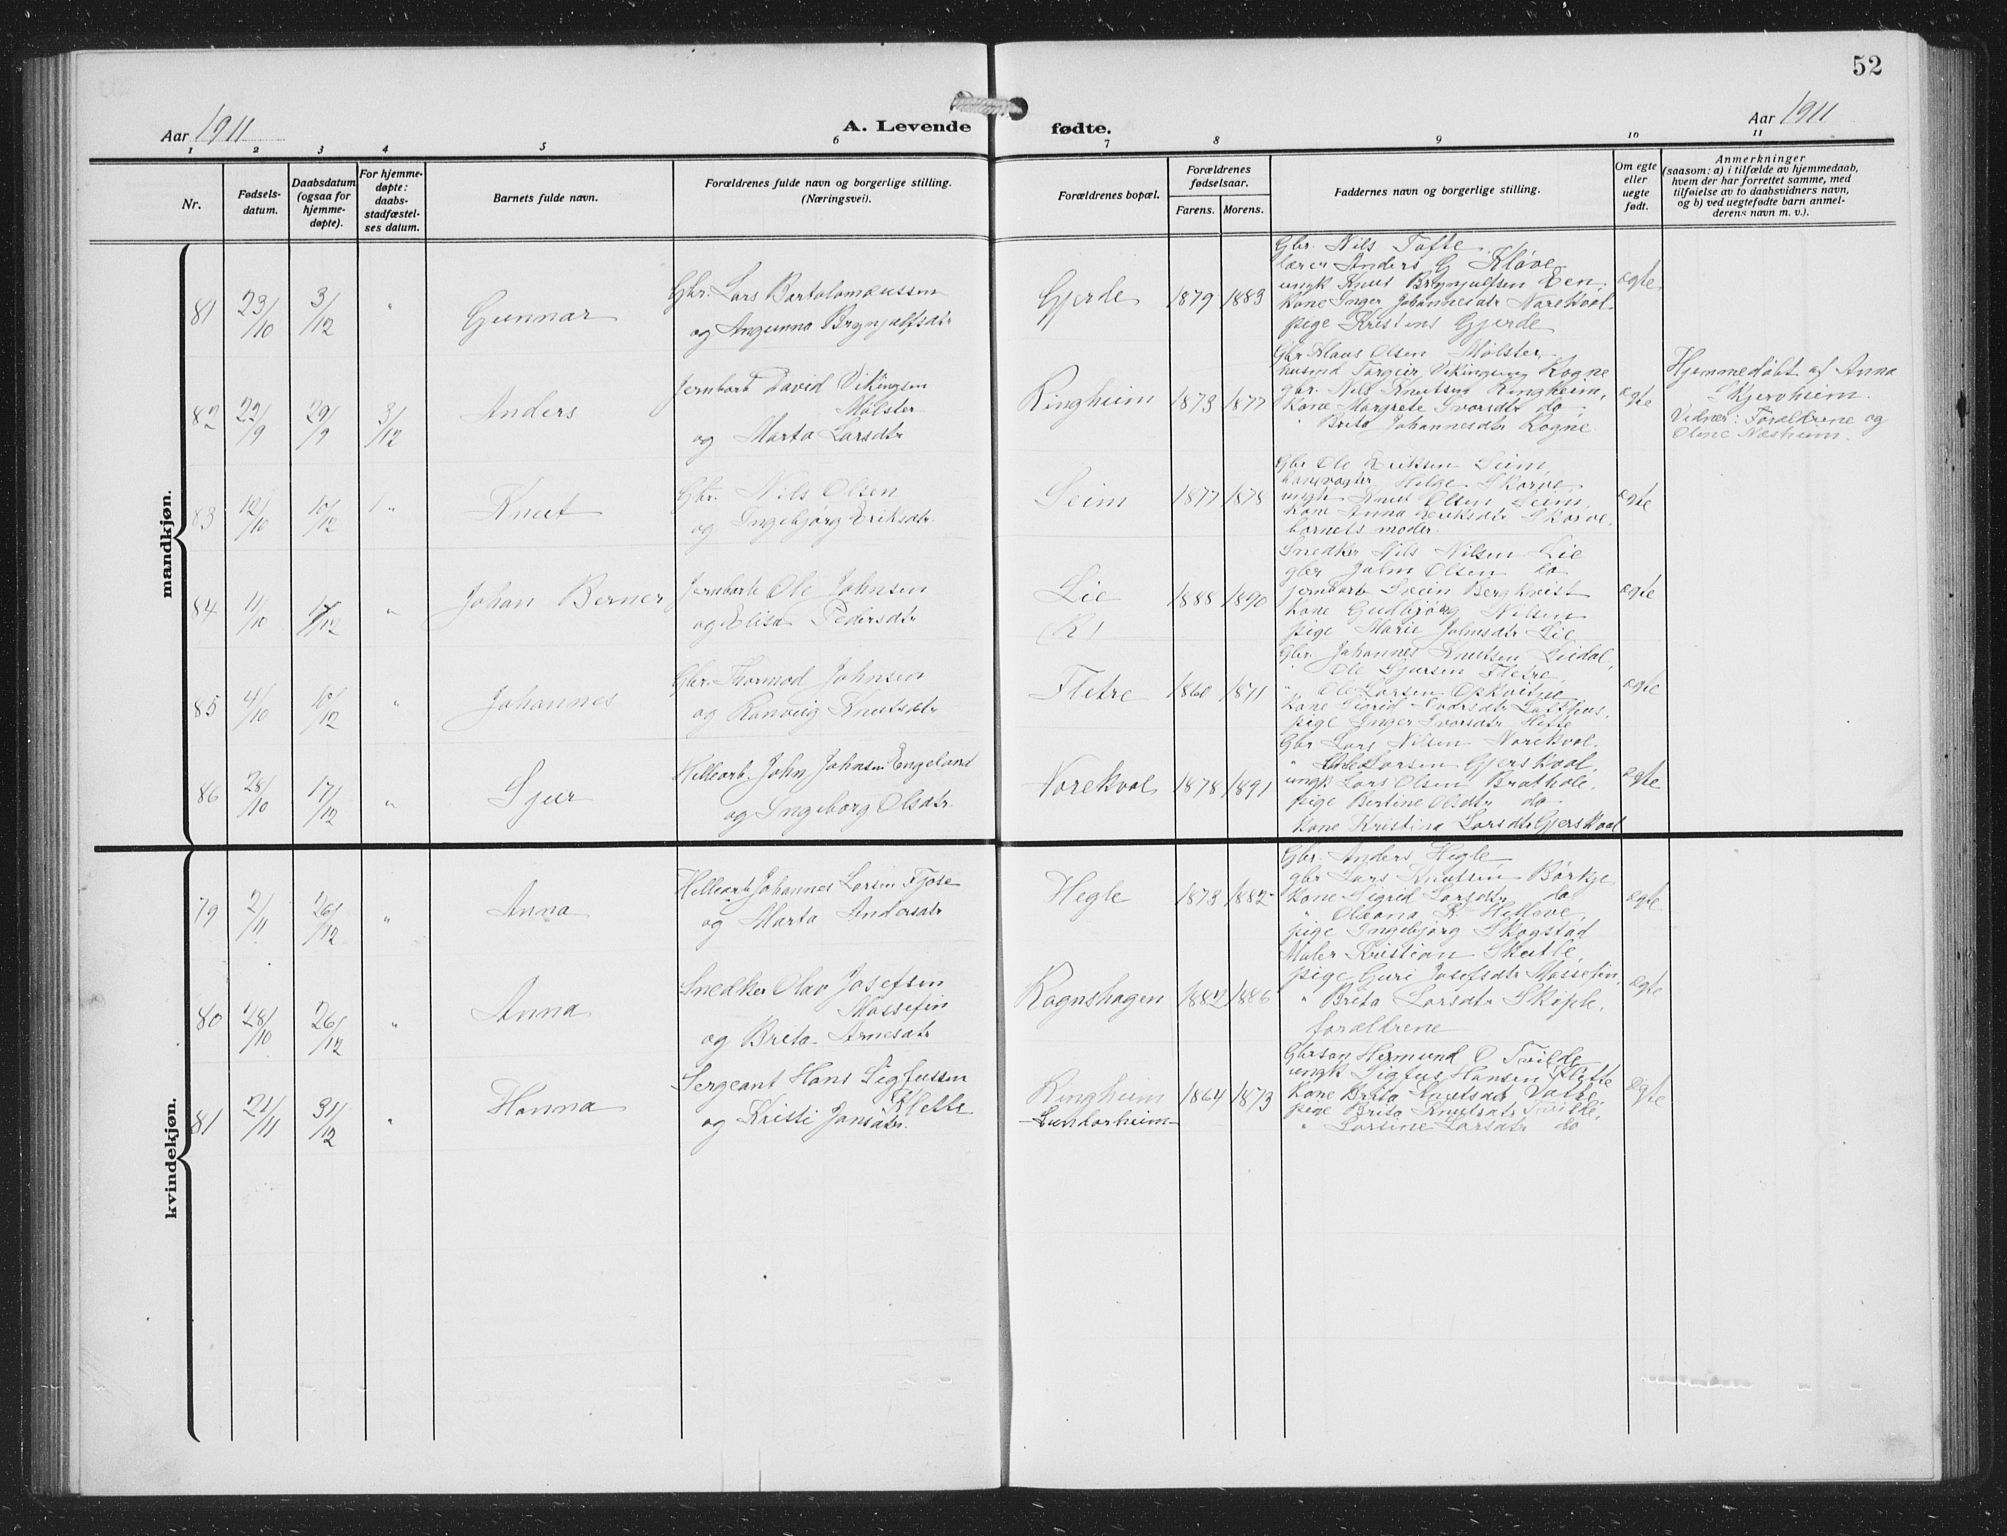 52
Aar 1911
A. Levende fødte.
Aar 1911
1 2 3 4 5 6 7 8 9 10 11
Nr.
Fødsels-
datum.
Daabsdatum
(ogsaa for
hjemme-
døpte).
For hjemme-
døpte:
daabs-
stadfæstel-
ses datum.
Barnets fulde navn.
Forældrenes fulde navn og borgerlige stilling.
(Næringsvei).
Forældrenes bopæl.
Forældrenes
fødselsaar.
Farens. Morens.
Faddernes navn og borgerlige stilling.
Om egte
eller
uegte
født.
Anmerkninger
(saasom: a) i tilfælde av hjemmedaab,
hvem der har forrettet samme, med
tilføielse av to daabsvidners navn,
og b) ved uegtefødte barn anmel-
derens navn m. v.).
mandkjøn.
81 23/10 3/12 " Gunnar
Gbr. Lars Bartolomæussen
og Ingunna Brynjulfsdtr
Gjerde 1879 1883
Gbr. Nils Tofte
lærer Anders G Kløve
ungk Knut Brynjulfsen Een,
Kone Inger Johannesdtr Norekval
pige Kristens Gjerde
egte
82 22/9 29/9 3/12 Anders
Jernbarb David Vikingsen
Mølster
og Marta Larsdtr
Ringheim 1873 1877
Gbr Klaus Olsen Mølster,
husmd Torgeir Vikingsen Rogne
gbr. Nils Knutsen Ringheim,
Kone Margrete Ivarsdtr do
" Brita Johannesdtr Rogne
egte
Hjemmedøbt af Anna
Skjervheim.
Vidner: Forældrene og
Oline Næsheim.
83 12/10 10/12 " Knut
Gbr. Nils Olsen
og Ingebjørg Eriksdtr
Seim 1877 1878
Gbr Ole Eriksen Seim,
banevogter Helge Skorve
ungk Knut Olsen Seim,
Kone Anna Eriksdtr Skorve,
barnets moder.
egte
84 11/10 17/12 " Johan Berner
Jernbarb Ole Johnsen
og Elisa Pedersdtr
Lie
1888 1890
Snedker Nils Nilsen Lie
gbr John Olsen do
jernbarb Svein Bergkvist
Kone Gudbjørg Nilsen
pige Marie Johnsdtr Lie
egte
85 4/10 10/12 " Johannes
Gbr. Thormod Johnsen
og Ranveig Knutsdtr
Fletre 1860 1871
Gbr. Johannes Knutsen Liedal,
" Ole Sjursen Fletre,
" Ole Larsen Opkvitne
Kone Sigrid Ivarsdtr
pige Inger Ivarsdtr
egte
86 28/10 17/12 " Sjur
Hellearb. John Johnsen Engeland
og Ingeborg Olsdtr.
Norekval 1878 1891
Gbr Lars Nilsen Norekval.
" Larsen Gjerskval,
ungk Lars Olsen Brathole,
pige Bertine Olsdtr do
Kone Kristina Larsdtr Gjerskval
egte
kvindekjøn.
79 2/11 26/12 " Anna
Hellearb Johannes Larsen Fjose
og Marta Andersdtr
Hegle 1873 1882
Gbr. Anders Hegle,
gbr Lars Knutsen Børkje
Kone Sigrid Larsdtr do
" Oleana K Helleve,
pige Ingebjørg Skogstad
egte
80 28/10 26/12 " Anna
Snedker Olav Josefsen
Massefin
og Brita Arnesdtr
Rognshagen 1882 1886
Maler Kristian Skutle,
pige Guri Josefsdtr Massefin,
" Brita Larsdtr Skiple,
forældrene
egte
81 21/11 31/12 " Hanna
Sergeant Hans Sigfussen
Klette
og Kristi Jansdtr.
Ringheim
Lundarheim
1864 1873
Gbrsøn Hermund O Tvilde
ungk Sigfus Hansen Klette
Kone Brita Knutsdtr Vatne,
pige Brita Knutsdtr Tvilde,
" Larsine Larsdtr do
egte